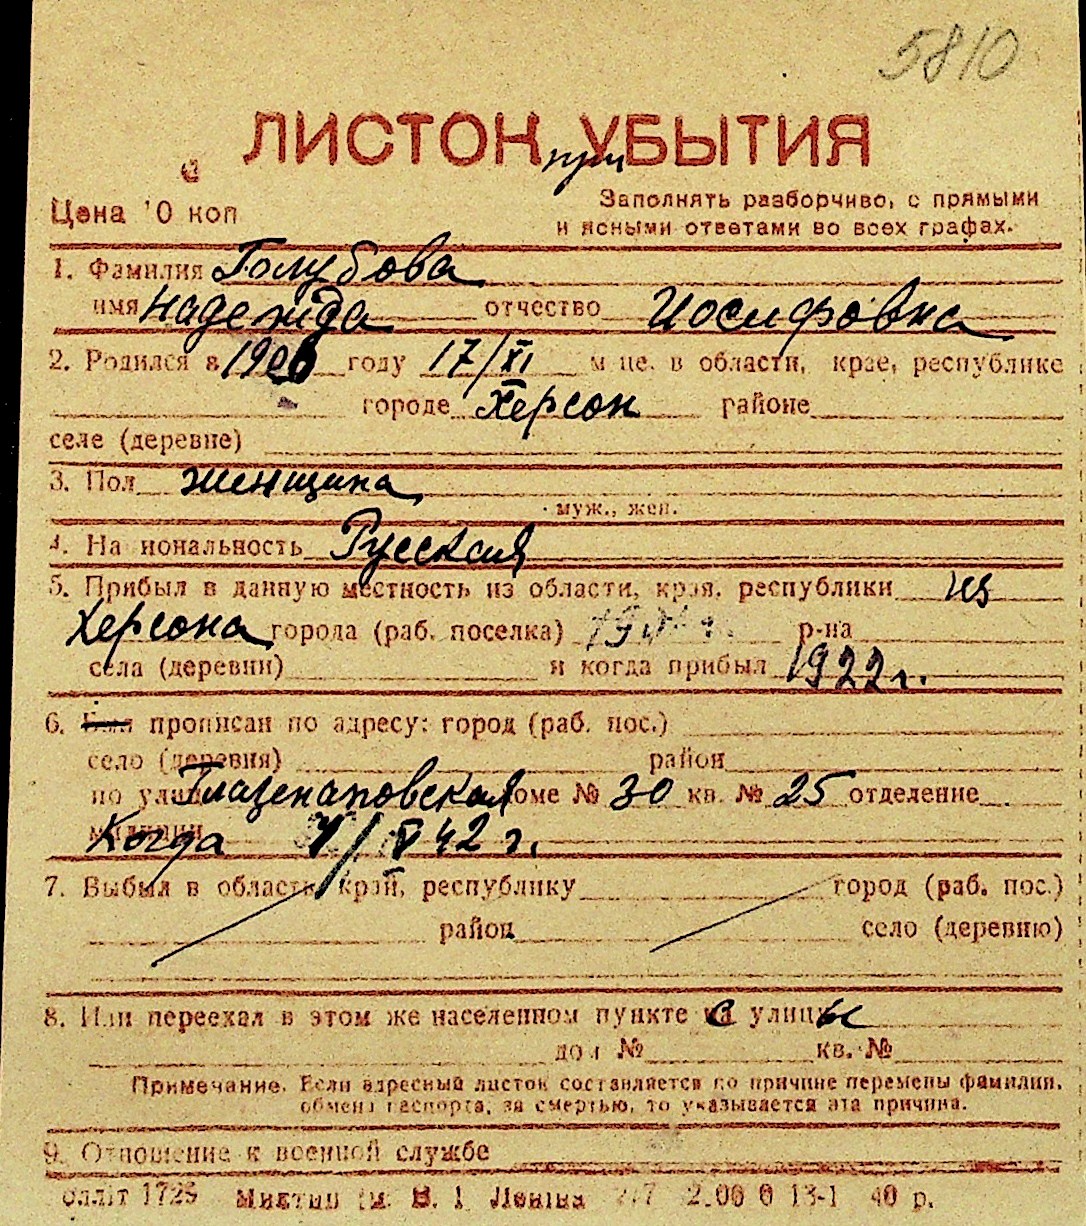 5810
ЛИСТОК при УБЫТИЯ
Цена 10 коп
Заполнять разборчиво, с прямыми
и ясными ответами во всех графах.
1. Фамилия Голубова
имя Надежда отчество Иосифовна
2. Родился в 1906 году 17/XI м-це. в области, крае, республике
городе Херсон районе
селе (деревне)
3. Пол женщина
муж., жен.
4. Национальность Русская
5. Прибыл в данную местность из области, края, республики из
Херсона города (раб. поселка) р-на
села (деревни) и когда прибыл 1922 г.
6. Был прописан по адресу: город (раб. пос.)
село (деревня) район
по улице доме № 30 кв. № 25 отделение
милиции Когда /V 42 г.
7. Выбыл в область, край, республику город (раб. пос.)
район село (деревню)
8. Или переехал в этом же населенном пункте с улицы
дом № кв. №
Примечание. Если адресный листок составляется по причине перемены фамилии,
обмена паспорта, за смертью, то указывается эта причина.
9. Отношение к военной службе
1725 В. І Леніна 2.00 0 13-1 40 р.